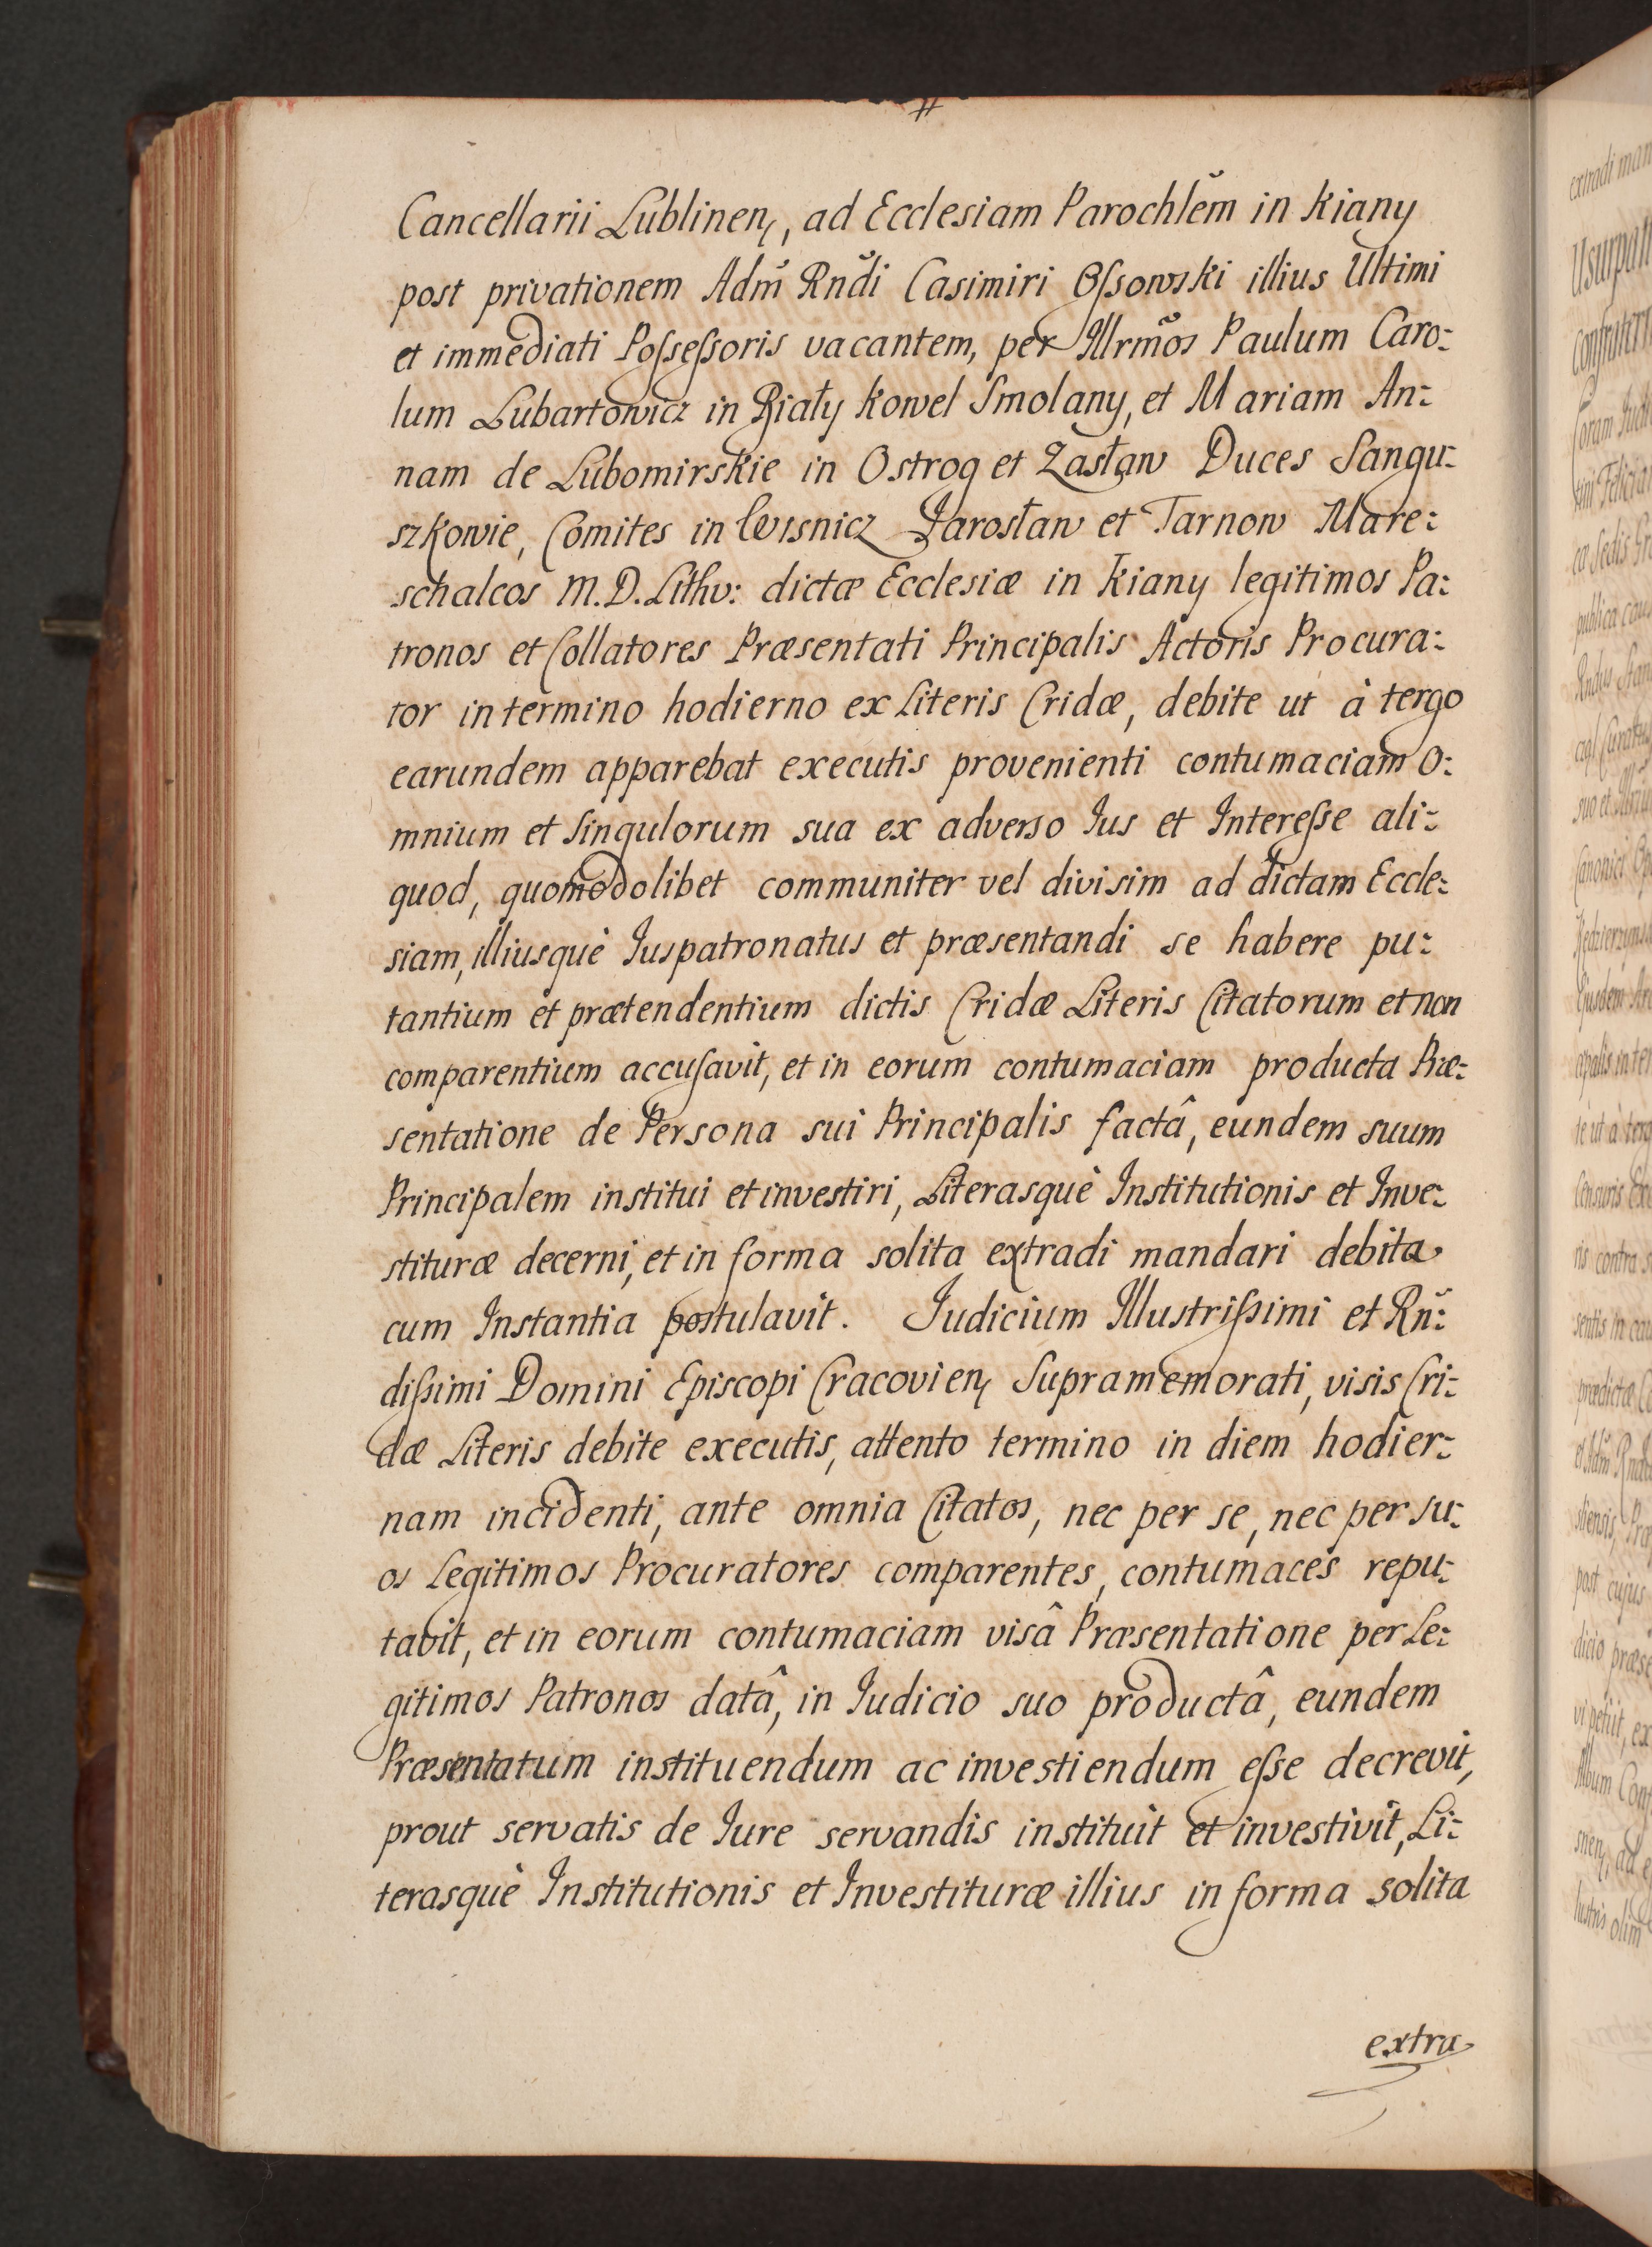 Cancellarii Lublinen, ad Ecclesiam Parochlem̃ in Kiany
post privationem Adm̃ Rndĩ Casimiri Oſsowski illius Ultimi
et immediati Poſseſsoris vacantem, per Illrmõs Paulum Caro:
lum Lubartowicz in Biały Kowel Smolany, et Mariam An:
nam de Lubomirskie in Ostrog et Zasław Duces Sangu:
szkowie, Comites in Wisnicz Jarosław et Tarnow Mare:
schalcos M.D. Lithv: dictæ Ecclesiæ in Kiany legitimos Pa:
tronos et Collatores Præsentati Principalis Actoris Procura:
tor in termino hodierno ex Literis Cridæ, debite ut à tergo
earundem apparebat executis provenienti contumaciam O:
mnium et Singulorum sua ex adverso Ius et Intereſse ali:
quod, quomodolibet communiter vel divisim ad dictam Eccle:
siam, illiusquè Iuspatronatus et præsentandi se habere pu:
tantium et prætendentium dictis Cridæ Literis Citatorum et non
comparentium accuſavit, et in eorum contumaciam producta Præ:
sentatione de Persona sui Principalis factâ, eundem suum
Principalem institui et investiri, Literasquè Institutionis et Inve:
stituræ decerni, et in forma solita extradi mandari debita
cum Instantia postulavit. Judicium Illustriſsimi et Rñ:
diſsimi Domini Episcopi Cracovien Supramemorati, visis Cri:
dæ Literis debite executis, attento termino in diem hodier:
nam incidenti, ante omnia Citatos, nec per se, nec per su:
os Legitimos Procuratores comparentes, contumaces repu:
tavit, et in eorum contumaciam visâ Præsentatione per Le:
gitimos Patronos datâ, in Iudicio suo productâ, eundem
Præsentatum instituendum ac investiendum eſse decrevit,
prout servatis de Iure servandis instituit et investivit, Li:
terasquè Institutionis et Investituræ illius in forma solita
extra